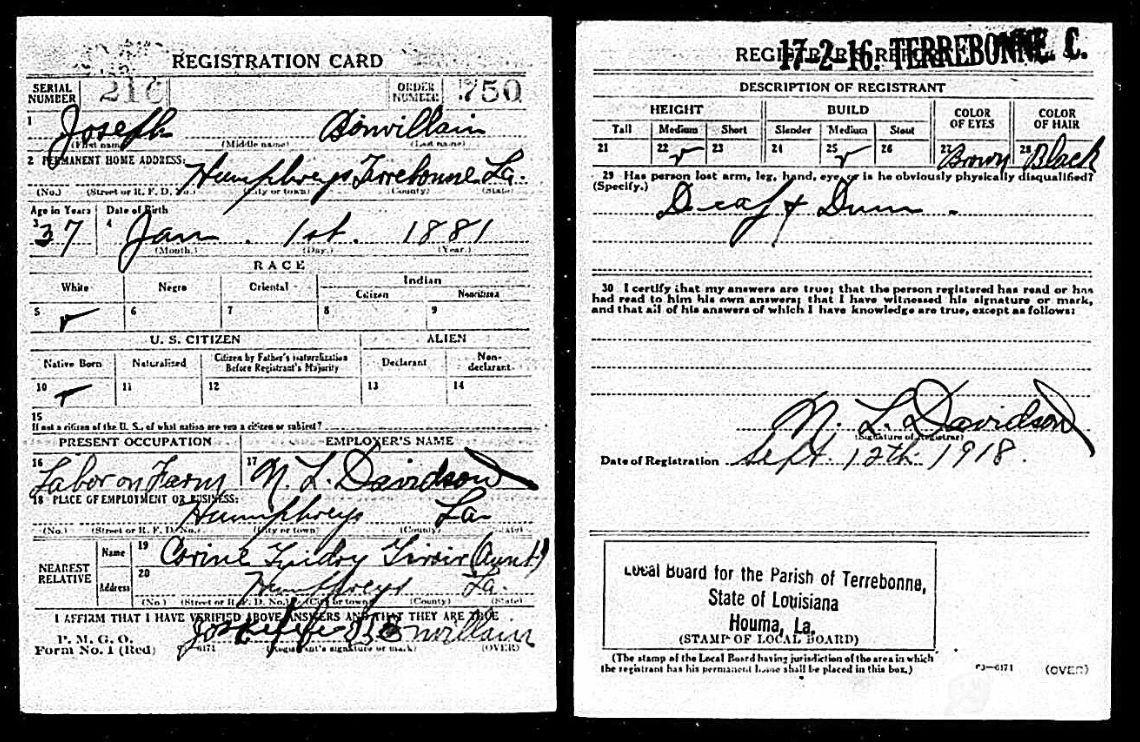 REGISTRATION CARD
SERIAL NUMBER 216 ORDER NUMBER 750
1 Joseph Bonvillain
(First name) (Middle name) (Last name)
2 PERMANENT HOME ADDRESS:
Humphreys Terrebonne La.
(No.) (Street or R. F. D. No.) (City or town) (County) (State)
Age in Years Date of Birth
3 37 4 Jan. 1st. 1881
(Month.) (Day.) (Year.)
RACE
White Negro Oriental Indian
Citizen Noncitizen
5 ✓ 6 7 8 9
U. S. CITIZEN ALIEN
Native Born Naturalized Citizen by Father's Naturalization Before Registrant's Majority Declarant Non-declarant
10 ✓ 11 12 13 14
15
If not a citizen of the U. S., of what nation are you a citizen or subject?
PRESENT OCCUPATION EMPLOYER'S NAME
16 Labor on Farm 17 N. L. Davidson
18 PLACE OF EMPLOYMENT OR BUSINESS:
Humphreys La.
(No.) (Street or R. F. D. No.) (City or town) (County) (State)
NEAREST RELATIVE Name 19 Corine (Aunt)
Address 20 Humphreys La.
(No.) (Street or R. F. D. No.) (City or town) (County) (State)
I AFFIRM THAT I HAVE VERIFIED ABOVE ANSWERS AND THAT THEY ARE TRUE
P. M. G. O.
Form No. 1 (Red) Bonvillain
(Registrant's signature or mark) (OVER)
17-2-16. TERREBONNE C.
DESCRIPTION OF REGISTRANT
HEIGHT BUILD COLOR OF EYES COLOR OF HAIR
Tall Medium Short Slender Medium Stout
21 22 ✓ 23 24 25 ✓ 26 27 Brown 28 Black
29 Has person lost arm, leg, hand, eye, or is he obviously physically disqualified?
(Specify.) Deaf & Dum.
30 I certify that my answers are true; that the person registered has read or has
had read to him his own answers; that I have witnessed his signature or mark,
and that all of his answers of which I have knowledge are true, except as follows:
N. L. Davidson
(Signature of Registrar)
Date of Registration Sept. 12th 1918.
Local Board for the Parish of Terrebonne,
State of Louisiana
Houma, La.
(STAMP OF LOCAL BOARD)
(The stamp of the Local Board having jurisdiction of the area in which
the registrant has his permanent home shall be placed in this box.)
(OVER)